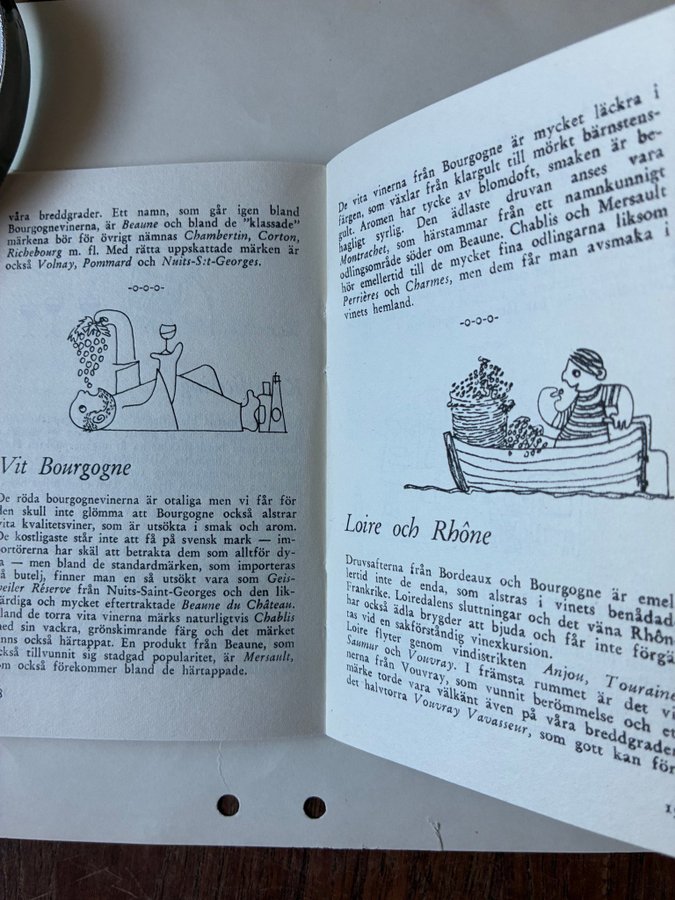 våra breddgrader. Ett namn, som går igen bland
Bourgognevinerna, är Beaune och bland de "klassade"
märkena bör för övrigt nämnas Chambertin, Corton,
Richebourg m. fl. Med rätta uppskattade märken är
också Volnay, Pommard och Nuits-S:t-Georges.
-o-o-o-
Vit Bourgogne
De röda bourgognevinerna är otaliga men vi får för
den skull inte glömma att Bourgogne också alstrar
vita kvalitetsviner, som är utsökta i smak och arom.
De kostligaste står inte att få på svensk mark — im-
portörerna har skäl att betrakta dem som alltför dy-
a — men bland de standardmärken, som importeras
å butelj, finner man en så utsökt vara som Geis-
weiler Réserve från Nuits-Saint-Georges och den lik-
ärdiga och mycket eftertraktade Beaune du Château.
land de torra vita vinerna märks naturligtvis Chablis
ed sin vackra, grönskimrande färg och det märket
nns också härtappat. En produkt från Beaune, som
också tillvunnit sig stadgad popularitet, är Mersault,
om också förekommer bland de härtappade.
8
De vita vinerna från Bourgogne är mycket läckra i
färgen, som växlar från klargult till mörkt bärnstens-
gult. Aromen har tycke av blomdoft, smaken är be-
hagligt syrlig. Den ädlaste druvan anses vara
Montrachet, som härstammar från ett namnkunnigt
odlingsområde söder om Beaune. Chablis och Mersault
hör emellertid till de mycket fina odlingarna liksom
Perrières och Charmes, men dem får man avsmaka i
vinets hemland.
-o-o-o-
Loire och Rhône
Druvsafterna från Bordeaux och Bourgogne är emel-
lertid inte de enda, som alstras i vinets benådade
Frankrike. Loiredalens sluttningar och det väna Rhôn
har också ädla brygder att bjuda och får inte förgä
tas vid en sakförståndig vinexkursion.
Loire flyter genom vindistrikten Anjou, Touraine
Saumur och Vouvray. I främsta rummet är det vi
nerna från Vouvray, som vunnit berömmelse och et
märke torde vara välkänt även på våra breddgrader
det halvtorra Vouvray Vavasseur, som gott kan för